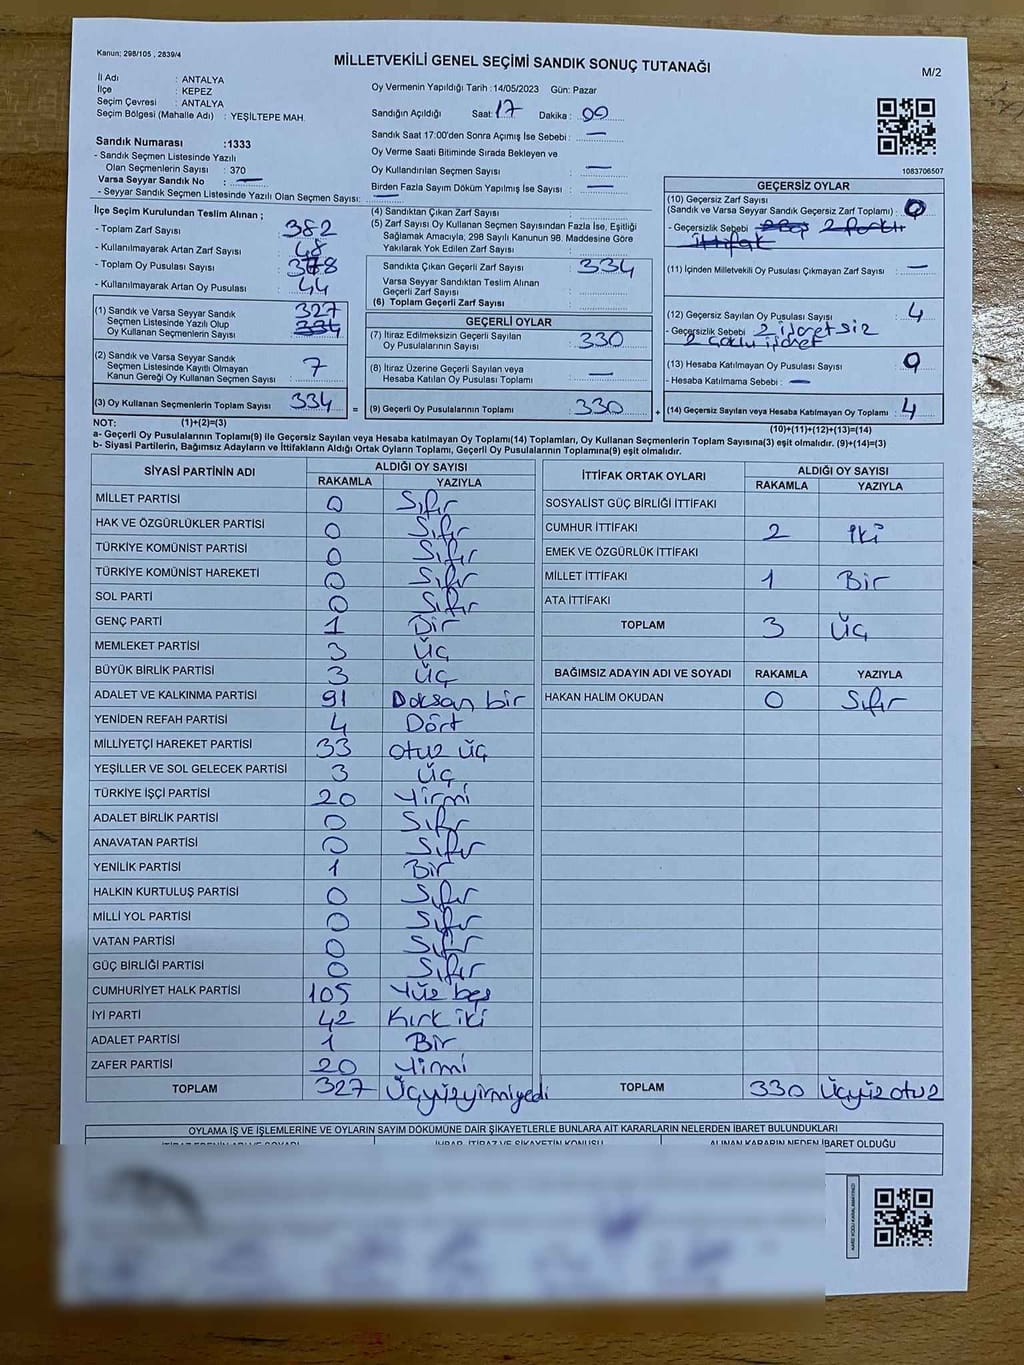 Kanun: 298/105 , 2839/4
MİLLETVEKİLİ GENEL SEÇİMİ SANDIK SONUÇ TUTANAĞI
M/2
İl Adı : ANTALYA
İlçe : KEPEZ
Seçim Çevresi : ANTALYA
Seçim Bölgesi (Mahalle Adı) : YEŞİLTEPE MAH.
Oy Vermenin Yapıldığı Tarih : 14/05/2023 Gün: Pazar
Sandığın Açıldığı Saat: 17 Dakika : 00
Sandık Saat 17:00'den Sonra Açımış İse Sebebi : —
Oy Verme Saati Bitiminde Sırada Bekleyen ve
Oy Kullandırılan Seçmen Sayısı : —
Birden Fazla Sayım Döküm Yapılmış İse Sayısı : —
1083706507
Sandık Numarası :1333
- Sandık Seçmen Listesinde Yazılı
Olan Seçmenlerin Sayısı : 370
Varsa Seyyar Sandık No : —
- Seyyar Sandık Seçmen Listesinde Yazılı Olan Seçmen Sayısı: —
İlçe Seçim Kurulundan Teslim Alınan ;
- Toplam Zarf Sayısı : 382
- Kullanılmayarak Artan Zarf Sayısı : 48
- Toplam Oy Pusulası Sayısı : 378
- Kullanılmayarak Artan Oy Pusulası : 44
(1) Sandık ve Varsa Seyyar Sandık
Seçmen Listesinde Yazılı Olup
Oy Kullanan Seçmenlerin Sayısı : 327
334
(2) Sandık ve Varsa Seyyar Sandık
Seçmen Listesinde Kayıtlı Olmayan
Kanun Gereği Oy Kullanan Seçmen Sayısı : 7
(3) Oy Kullanan Seçmenlerin Toplam Sayısı : 334
(4) Sandıktan Çıkan Zarf Sayısı :
(5) Zarf Sayısı Oy Kullanan Seçmen Sayısından Fazla İse, Eşitliği
Sağlamak Amacıyla, 298 Sayılı Kanunun 98. Maddesine Göre
Yakılarak Yok Edilen Zarf Sayısı :
Sandıkta Çıkan Geçerli Zarf Sayısı : 334
Varsa Seyyar Sandıktan Teslim Alınan
Geçerli Zarf Sayısı :
(6) Toplam Geçerli Zarf Sayısı :
GEÇERLİ OYLAR
(7) İtiraz Edilmeksizin Geçerli Sayılan
Oy Pusulalarının Sayısı : 330
(8) İtiraz Üzerine Geçerli Sayılan veya
Hesaba Katılan Oy Pusulası Toplamı : —
= (9) Geçerli Oy Pusulalarının Toplamı : 330 +
GEÇERSİZ OYLAR
(10) Geçersiz Zarf Sayısı
(Sandık ve Varsa Seyyar Sandık Geçersiz Zarf Toplamı) : 0
- Geçersizlik Sebebi : 2 Partili
ittifak
(11) İçinden Milletvekili Oy Pusulası Çıkmayan Zarf Sayısı : —
(12) Geçersiz Sayılan Oy Pusulası Sayısı : 4
- Geçersizlik Sebebi : 2 işaretsiz
2 çoklu işaret
(13) Hesaba Katılmayan Oy Pusulası Sayısı : 0
- Hesaba Katılmama Sebebi : —
(14) Geçersiz Sayılan veya Hesaba Katılmayan Oy Toplamı : 4
NOT: (1)+(2)=(3)
(10)+(11)+(12)+(13)=(14)
a- Geçerli Oy Pusulalarının Toplamı(9) ile Geçersiz Sayılan veya Hesaba katılmayan Oy Toplamı(14) Toplamları, Oy Kullanan Seçmenlerin Toplam Sayısına(3) eşit olmalıdır. (9)+(14)=(3)
b- Siyasi Partilerin, Bağımsız Adayların ve İttifakların Aldığı Ortak Oyların Toplamı, Geçerli Oy Pusulalarının Toplamına(9) eşit olmalıdır.
SİYASİ PARTİNİN ADI ALDIĞI OY SAYISI
RAKAMLA YAZIYLA
MİLLET PARTİSİ 0 Sıfır
HAK VE ÖZGÜRLÜKLER PARTİSİ 0 Sıfır
TÜRKİYE KOMÜNİST PARTİSİ 0 Sıfır
TÜRKİYE KOMÜNİST HAREKETİ 0 Sıfır
SOL PARTİ 0 Sıfır
GENÇ PARTİ 1 Bir
MEMLEKET PARTİSİ 3 Üç
BÜYÜK BİRLİK PARTİSİ 3 Üç
ADALET VE KALKINMA PARTİSİ 91 Doksan bir
YENİDEN REFAH PARTİSİ 4 Dört
MİLLİYETÇİ HAREKET PARTİSİ 33 otuz üç
YEŞİLLER VE SOL GELECEK PARTİSİ 3 Üç
TÜRKİYE İŞÇİ PARTİSİ 20 Yirmi
ADALET BİRLİK PARTİSİ 0 Sıfır
ANAVATAN PARTİSİ 0 Sıfır
YENİLİK PARTİSİ 1 Bir
HALKIN KURTULUŞ PARTİSİ 0 Sıfır
MİLLİ YOL PARTİSİ 0 Sıfır
VATAN PARTİSİ 0 Sıfır
GÜÇ BİRLİĞİ PARTİSİ 0 Sıfır
CUMHURİYET HALK PARTİSİ 105 Yüz beş
İYİ PARTİ 42 Kırk iki
ADALET PARTİSİ 1 Bir
ZAFER PARTİSİ 20 Yirmi
TOPLAM 327 Üçyüzyirmiyedi
İTTİFAK ORTAK OYLARI ALDIĞI OY SAYISI
RAKAMLA YAZIYLA
SOSYALİST GÜÇ BİRLİĞİ İTTİFAKI
CUMHUR İTTİFAKI 2 İki
EMEK VE ÖZGÜRLÜK İTTİFAKI
MİLLET İTTİFAKI 1 Bir
ATA İTTİFAKI
TOPLAM 3 Üç
BAĞIMSIZ ADAYIN ADI VE SOYADI RAKAMLA YAZIYLA
HAKAN HALİM OKUDAN 0 Sıfır
TOPLAM 330 Üçyüz otuz
OYLAMA İŞ VE İŞLEMLERİNE VE OYLARIN SAYIM DÖKÜMÜNE DAİR ŞİKAYETLERLE BUNLARA AİT KARARLARIN NELERDEN İBARET BULUNDUKLARI
İTİRAZ EDENİN ADI VE SOYADI İHBAR, İTİRAZ VE ŞİKAYETİN KONUSU ALINAN KARARIN NEDEN İBARET OLDUĞU